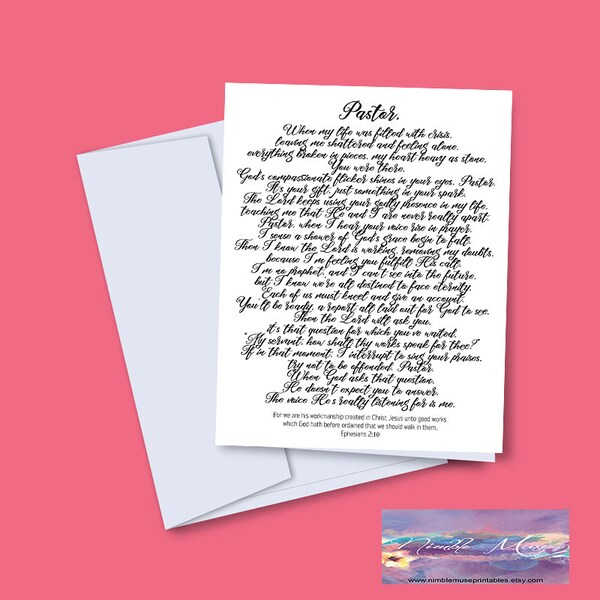 Pastor,
When my life was filled with crisis,
leaving me shattered and feeling alone,
everything broken in pieces, my heart heavy as stone,
You were there.
God's compassionate flicker shines in your eyes, Pastor.
It's your gift, just something in your spark.
The Lord keeps using your godly presence in my life,
teaching me that He and I are never really apart.
Pastor, when I hear your voice rise in prayer,
I sense a shower of God's grace begin to fall.
Then I know the Lord is working, removing my doubts,
because I'm feeling you fulfill His call.
I'm no prophet, and I can't see into the future,
but I know we're all destined to face eternity.
Each of us must kneel and give an account.
You'll be ready, a report all laid out for God to see.
Then the Lord will ask you,
it's that question for which you've waited,
"My servant, how shall thy works speak for thee?
If in that moment, I interrupt to sing your praises,
try not to be offended, Pastor.
When God asks that question,
He doesn't expect you to answer.
The voice He's really listening for is me.
For we are his workmanship created in Christ Jesus unto good works
which God hath before ordained that we should walk in them.
Ephesians 2:10
Nimble Muse
www.nimblemuseprintables.etsy.com